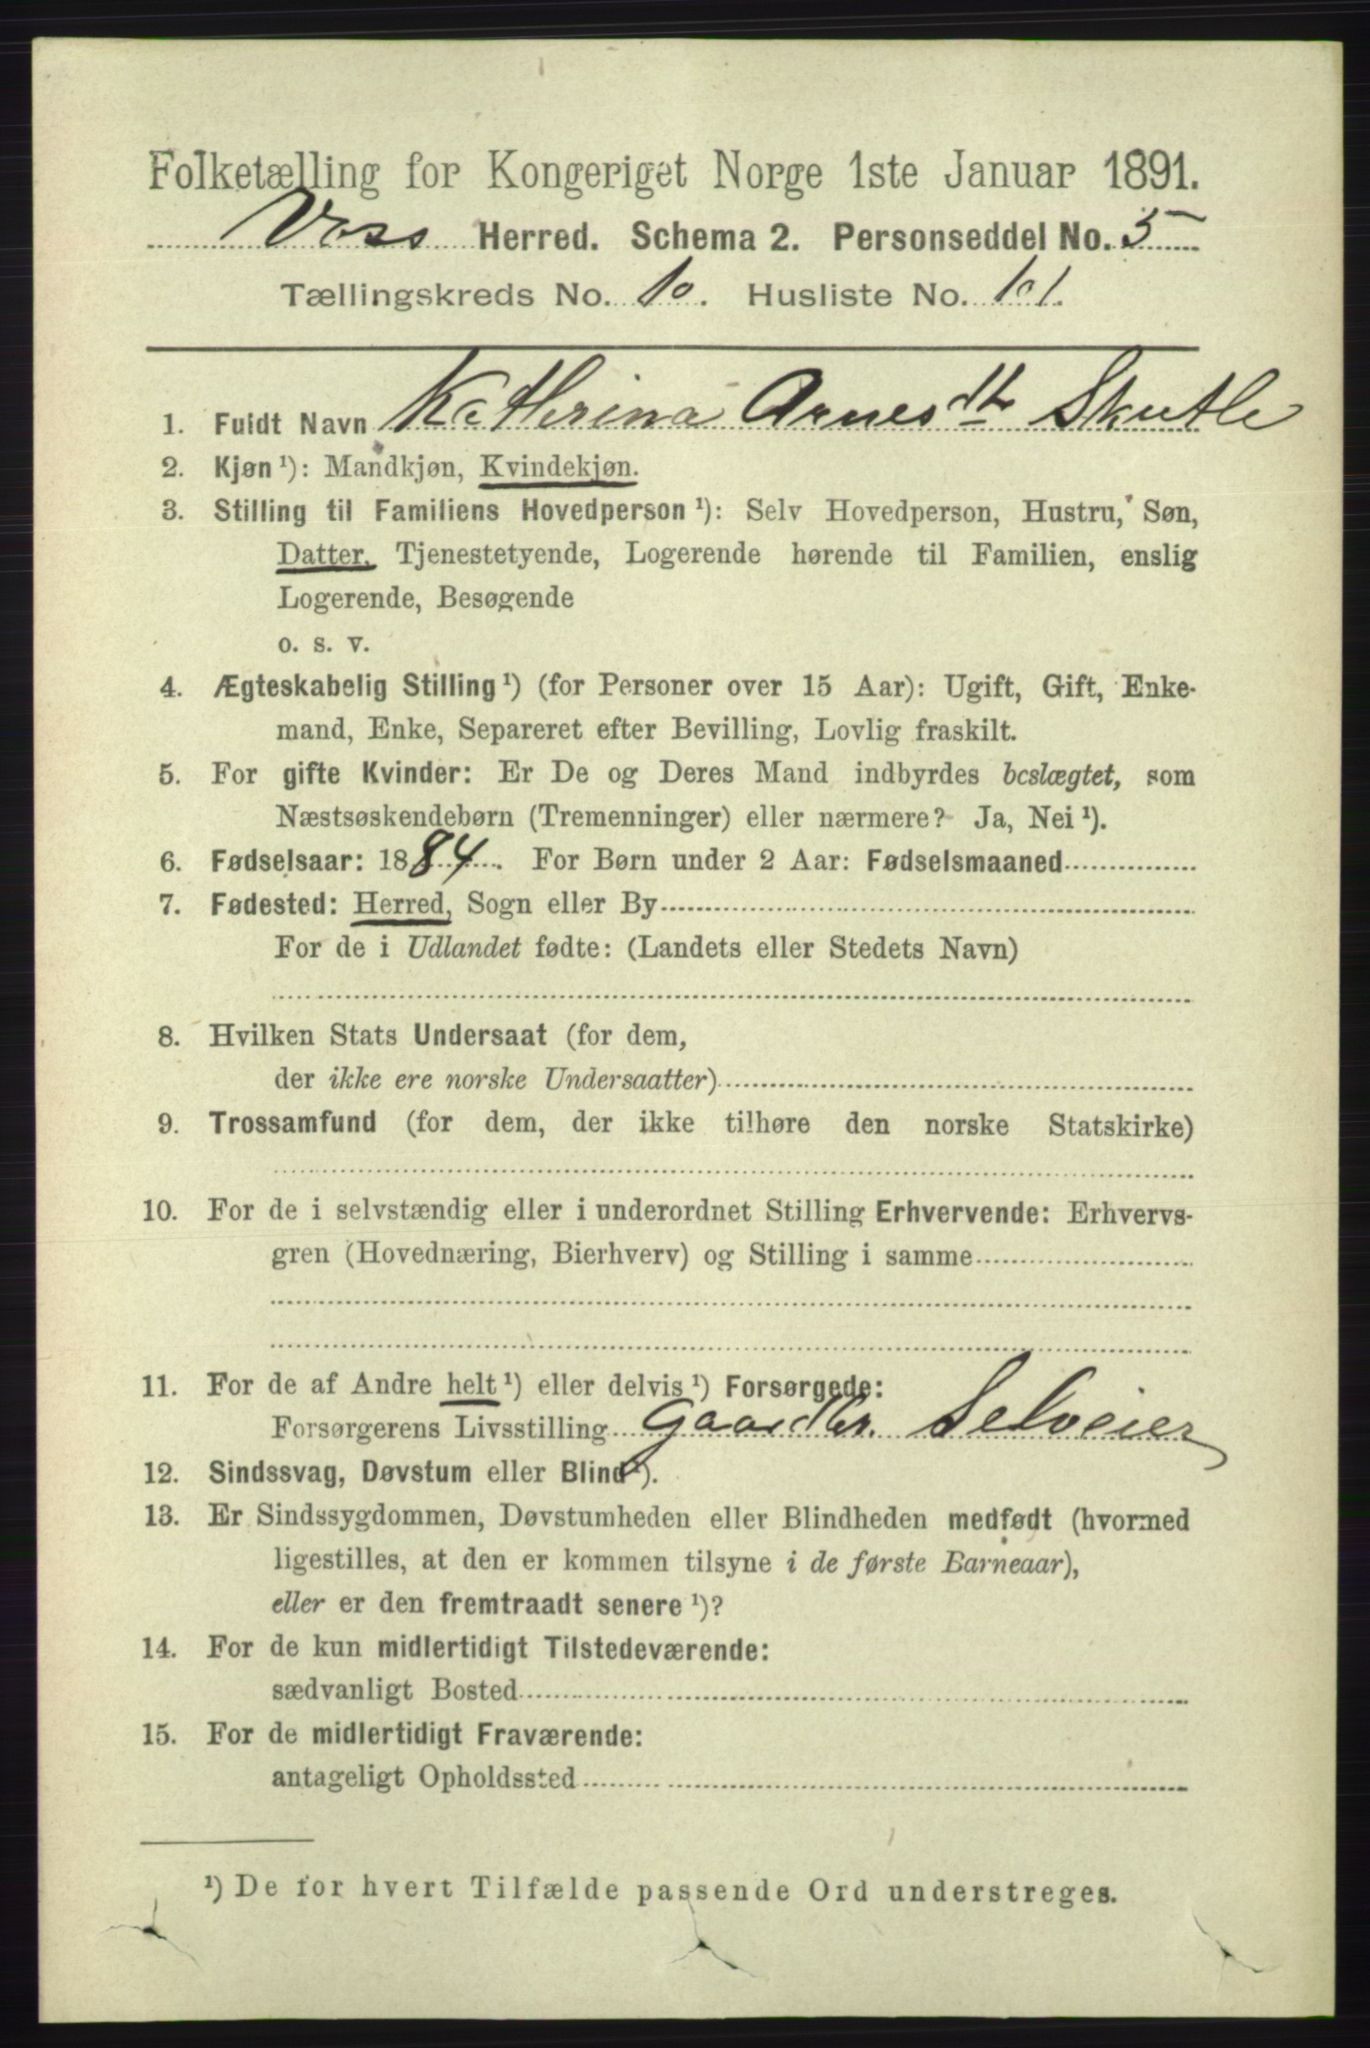 Folketælling for Kongeriget Norge 1ste Januar 1891.
Voss Herred. Schema 2. Personseddel No. 5
Tællingskreds No. 10. Husliste No. 101.
1. Fuldt Navn Katherina Arnesdtr Skutle
2. Kjøn ¹): Mandkjøn, Kvindekjøn.
3. Stilling til Familiens Hovedperson ¹): Selv Hovedperson, Hustru, Søn,
Datter, Tjenestetyende, Logerende hørende til Familien, enslig
Logerende, Besøgende
o. s. v.
4. Ægteskabelig Stilling ¹) (for Personer over 15 Aar): Ugift, Gift, Enke-
mand, Enke, Separeret efter Bevilling, Lovlig fraskilt.
5. For gifte Kvinder: Er De og Deres Mand indbyrdes beslægtet, som
Næstsøskendebørn (Tremenninger) eller nærmere? Ja, Nei ¹).
6. Fødselsaar: 1884. For Børn under 2 Aar: Fødselsmaaned
7. Fødested: Herred, Sogn eller By
For de i Udlandet fødte: (Landets eller Stedets Navn)
8. Hvilken Stats Undersaat (for dem,
der ikke ere norske Undersaatter)
9. Trossamfund (for dem, der ikke tilhøre den norske Statskirke)
10. For de i selvstændig eller i underordnet Stilling Erhvervende: Erhvervs-
gren (Hovednæring, Bierhverv) og Stilling i samme
11. For de af Andre helt ¹) eller delvis ¹) Forsørgede:
Forsørgerens Livsstilling Gaardbr. Selveier
12. Sindssvag, Døvstum eller Blind ¹).
13. Er Sindssygdommen, Døvstumheden eller Blindheden medfødt (hvormed
ligestilles, at den er kommen tilsyne i de første Barneaar),
eller er den fremtraadt senere ¹)?
14. For de kun midlertidigt Tilstedeværende:
sædvanligt Bosted
15. For de midlertidigt Fraværende:
antageligt Opholdssted
¹) De for hvert Tilfælde passende Ord understreges.